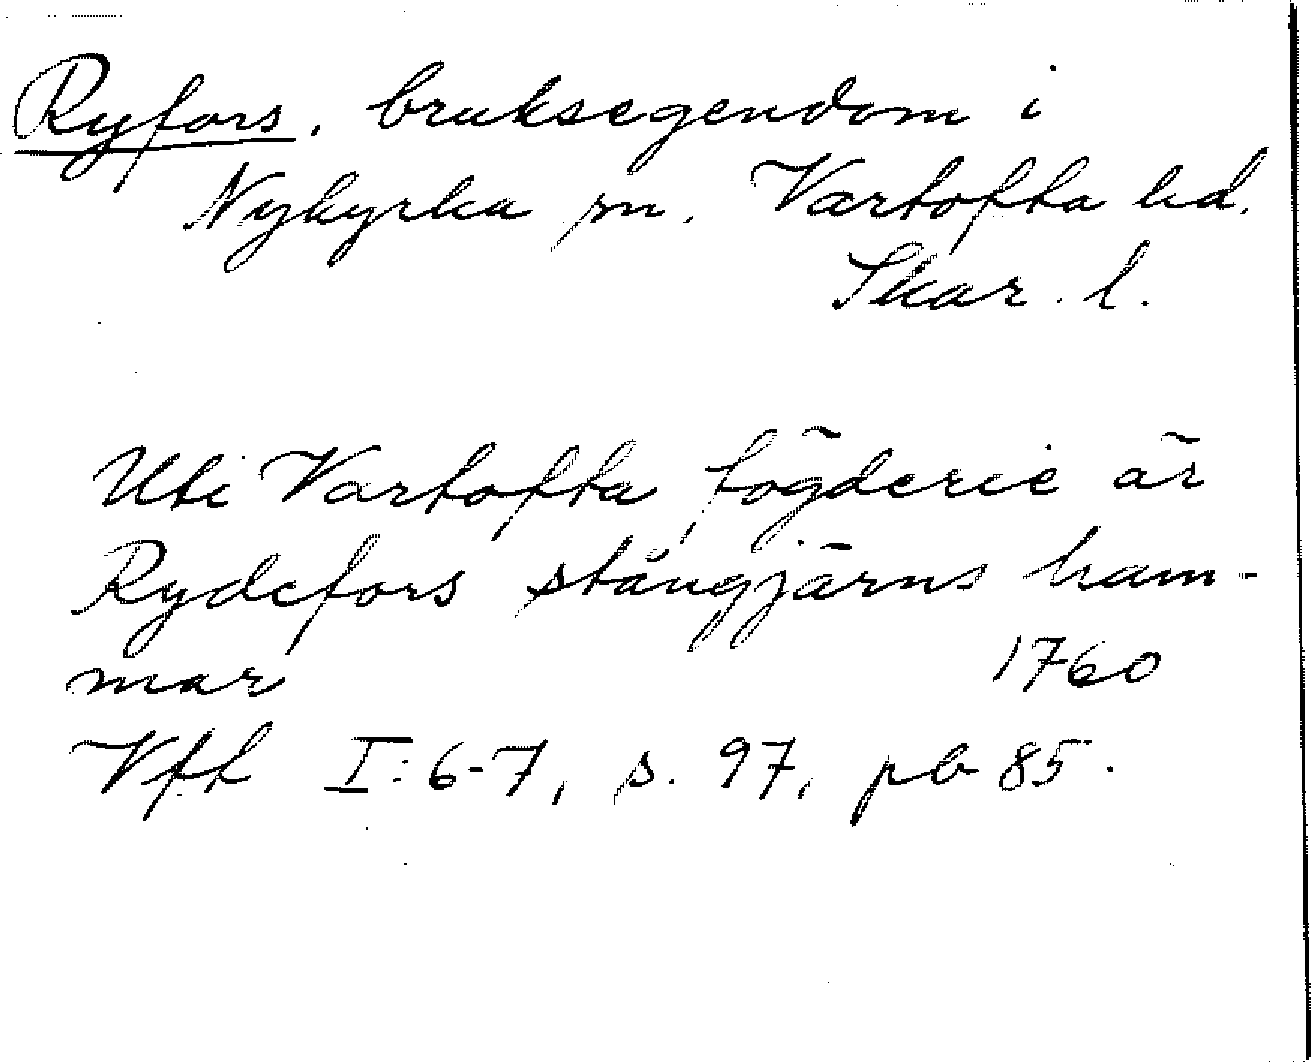 Ryfors, bruksegendom i
Nykyrka sn. Vartofta hd.
Skar. l.
Uti Vartofta fögderie är
Rydefors stångjärns ham-
mar 1760
Vft I: 6-7, s. 97, pb 85.